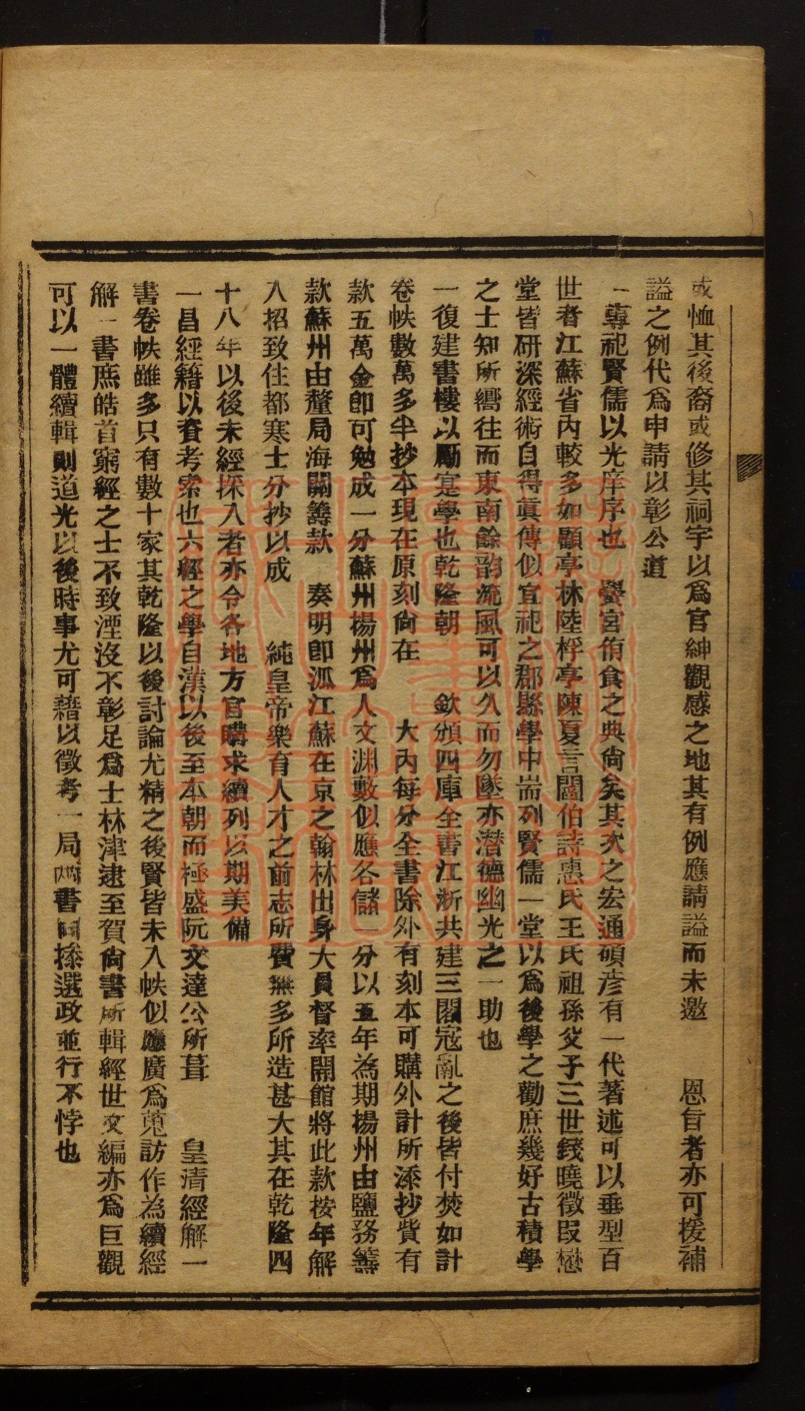 或恤其後裔或修其祠宇以爲官紳觀感之地其有例應請謚而未邀　恩旨者亦可援補
謚之例代爲申請以彰公道
一專祀賢儒以光庠序也　黌宮侑食之典尙矣其次之宏通碩彥有一代著述可以垂型百
世者江蘇省內較多如顧亭林陸桴亭陳夏言閻伯詩惠氏王氏祖孫父子三世錢曉徵段懋
堂皆硏深經術自得眞傳似宜祀之郡縣學中耑列賢儒一堂以爲後學之勸庶幾好古積學
之士知所嚮往而東南餘韵流風可以久而勿墜亦潛德幽光之一助也
一復建書樓以勵寔學也乾隆朝　　欽頒四庫全書江浙共建三閣寇亂之後皆付焚如計
卷帙數萬多半抄本現在原刻尙在　　大內每分全書除外有刻本可購外計所添抄貲有
款五萬金卽可勉成一分蘇州楊州爲人文淵藪似應各儲一分以五年為期楊州由鹽務籌
款蘇州由釐局海關籌款　奏明卽派江蘇在京之翰林出身大員督率開館將此款按年解
入招致住都寒士分抄以成　　純皇帝樂育人才之前志所費無多所造甚大其在乾隆四
十八年以後未經採入者亦令各地方官購求續列以期美備
一昌經籍以資考索也六經之學自漢以後至本朝而極盛阮文達公所葺　　皇清經解一
書卷帙雖多只有數十家其乾隆以後討論尤精之後賢皆未入帙似應廣爲蒐訪作為續經
解一書庶皓首窮經之士不致湮沒不彰足爲士林津逮至賀尙書所輯經世文編亦爲巨觀
可以一體續輯則道光以後時事尤可藉以徵考一局兩書同採選政並行不悖也